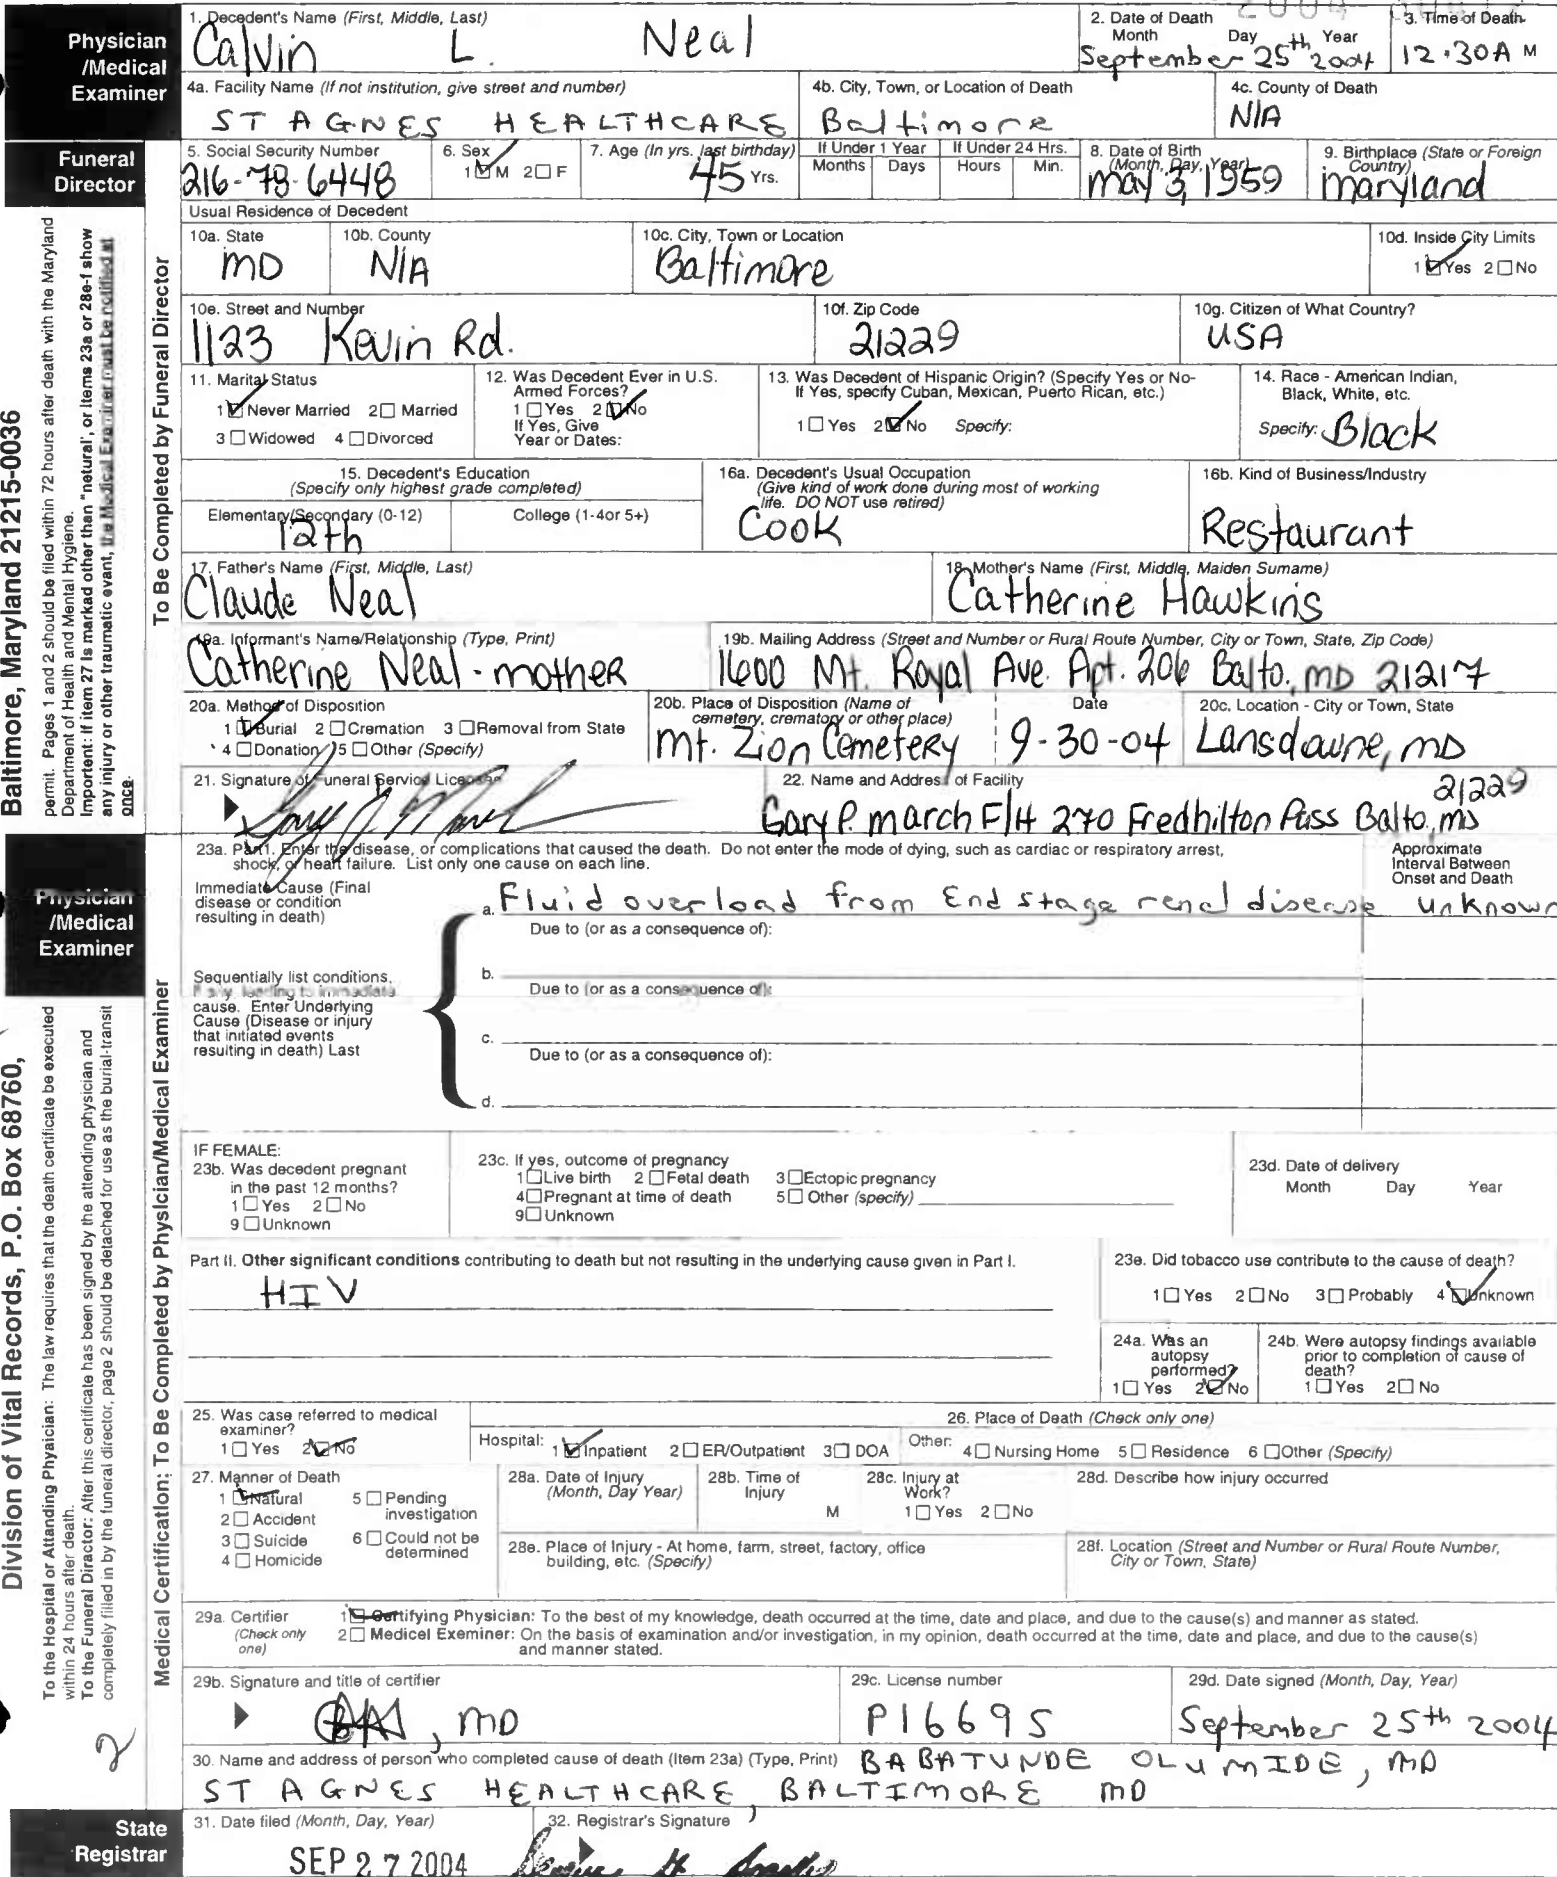 1. Decedent's Name (First, Middle, Last)
Calvin L. Neal
2. Date of Death
Month Day Year
September 25th 2004
3. Time of Death
12.30A M
Physician
/Medical
Examiner
4a. Facility Name (If not institution, give street and number)
ST AGNES HEALTHCARE
4b. City, Town, or Location of Death
Baltimore
4c. County of Death
N/A
Funeral
Director
5. Social Security Number
216-78-6448
6. Sex
1☑M 2☐F
7. Age (In yrs. last birthday)
45 Yrs.
If Under 1 Year
Months Days
If Under 24 Hrs.
Hours Min.
8. Date of Birth
(Month, Day, Year)
may 3, 1959
9. Birthplace (State or Foreign
Country)
maryland
Usual Residence of Decedent
10a. State
MD
10b. County
N/A
10c. City, Town or Location
Baltimore
10d. Inside City Limits
1☑Yes 2☐No
10e. Street and Number
1123 Kevin Rd.
10f. Zip Code
21229
10g. Citizen of What Country?
USA
11. Marital Status
1☑Never Married 2☐Married
3☐Widowed 4☐Divorced
12. Was Decedent Ever in U.S.
Armed Forces?
1☐Yes 2☑No
If Yes, Give
Year or Dates:
13. Was Decedent of Hispanic Origin? (Specify Yes or No-
If Yes, specify Cuban, Mexican, Puerto Rican, etc.)
1☐Yes 2☑No Specify:
14. Race - American Indian,
Black, White, etc.
Specify: Black
15. Decedent's Education
(Specify only highest grade completed)
Elementary/Secondary (0-12) College (1-4or 5+)
12th
16a. Decedent's Usual Occupation
(Give kind of work done during most of working
life. DO NOT use retired)
Cook
16b. Kind of Business/Industry
Restaurant
17. Father's Name (First, Middle, Last)
Claude Neal
18. Mother's Name (First, Middle, Maiden Surname)
Catherine Hawkins
19a. Informant's Name/Relationship (Type, Print)
Catherine Neal - mother
19b. Mailing Address (Street and Number or Rural Route Number, City or Town, State, Zip Code)
1600 Mt. Royal Ave. Apt. 206 Balto., MD 21217
20a. Method of Disposition
1☑Burial 2☐Cremation 3☐Removal from State
4☐Donation 5☐Other (Specify)
20b. Place of Disposition (Name of
cemetery, crematory or other place)
Mt. Zion Cemetery
Date
9-30-04
20c. Location - City or Town, State
Lansdowne, MD
21. Signature of Funeral Service Licensee
22. Name and Address of Facility
21229
Gary P. March F/H 270 Fredhilton Pass Balto, MD
To Be Completed by Funeral Director
Baltimore, Maryland 21215-0036
permit. Pages 1 and 2 should be filed within 72 hours after death with the Maryland
Department of Health and Mental Hygiene.
Importent: If item 27 is markad other than "natural', or items 23a or 28e-f show
any injury or other traumatic evant, the Medical Examiner must be notified at
once.
Physician
/Medical
Examiner
23a. Part1. Enter the disease, or complications that caused the death. Do not enter the mode of dying, such as cardiac or respiratory arrest,
shock, or heart failure. List only one cause on each line.
Approximate
Interval Between
Onset and Death
Immediate Cause (Final
disease or condition
resulting in death)
a. Fluid overload from End stage renal disease unknown
Due to (or as a consequence of):
Sequentially list conditions,
if any, leading to immediate
cause. Enter Underlying
Cause (Disease or injury
that initiated events
resulting in death) Last
b.
Due to (or as a consequence of):
c.
Due to (or as a consequence of):
d.
IF FEMALE:
23b. Was decedent pregnant
in the past 12 months?
1☐Yes 2☐No
9☐Unknown
23c. If yes, outcome of pregnancy
1☐Live birth 2☐Fetal death 3☐Ectopic pregnancy
4☐Pregnant at time of death 5☐Other (specify)
9☐Unknown
23d. Date of delivery
Month Day Year
Part II. Other significant conditions contributing to death but not resulting in the underlying cause given in Part I.
HIV
23e. Did tobacco use contribute to the cause of death?
1☐Yes 2☐No 3☐Probably 4☑Unknown
24a. Was an
autopsy
performed?
1☐Yes 2☑No
24b. Were autopsy findings available
prior to completion of cause of
death?
1☐Yes 2☐No
25. Was case referred to medical
examiner?
1☐Yes 2☑No
26. Place of Death (Check only one)
Hospital: 1☑Inpatient 2☐ER/Outpatient 3☐DOA Other: 4☐Nursing Home 5☐Residence 6☐Other (Specify)
27. Manner of Death
1☑Natural
2☐Accident
3☐Suicide
4☐Homicide
5☐Pending
investigation
6☐Could not be
determined
28a. Date of Injury
(Month, Day Year)
28b. Time of
Injury
M
28c. Injury at
Work?
1☐Yes 2☐No
28d. Describe how injury occurred
28e. Place of Injury - At home, farm, street, factory, office
building, etc. (Specify)
28f. Location (Street and Number or Rural Route Number,
City or Town, State)
29a. Certifier
(Check only
one)
1☑Certifying Physician: To the best of my knowledge, death occurred at the time, date and place, and due to the cause(s) and manner as stated.
2☐Medicel Exeminer: On the basis of examination and/or investigation, in my opinion, death occurred at the time, date and place, and due to the cause(s)
and manner stated.
29b. Signature and title of certifier
, MD
29c. License number
P16695
29d. Date signed (Month, Day, Year)
September 25th 2004
30. Name and address of person who completed cause of death (Item 23a) (Type, Print) BABATUNDE OLUMIDE, MD
ST AGNES HEALTHCARE, BALTIMORE MD
Medical Certification: To Be Completed by Physician/Medical Examiner
Division of Vital Records, P.O. Box 68760,
To the Hospital or Attanding Physician: The law requires that the death certificate be executed
within 24 hours after death.
To the Funeral Diractor: After this certificate has been signed by the attending physician and
completely filled in by the funeral director, page 2 should be detached for use as the burial-transit
2
State
Registrar
31. Date filed (Month, Day, Year)
SEP 27 2004
32. Registrar's Signature